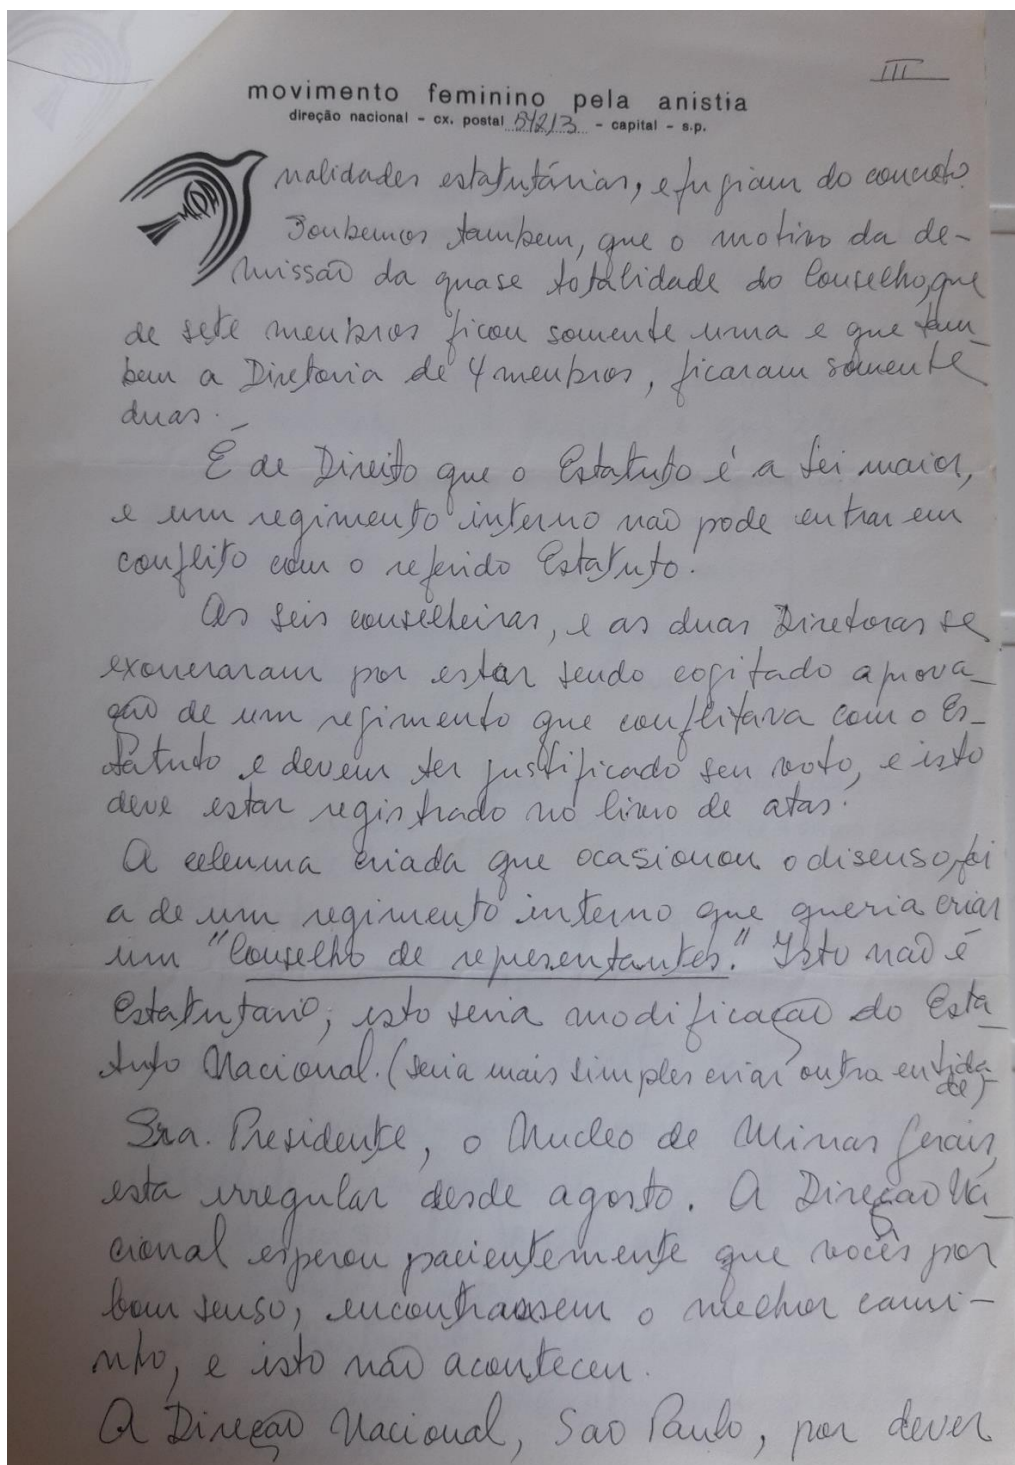 III
movimento feminino pela anistia
direção nacional - cx. postal 54213 - capital - s.p.
nalidades estatutárias, e fugiam do concreto.
Soubemos tambem, que o motivo da de-
missão da quase totalidade do Conselho, que
de sete membros ficou somente uma e que tam-
bem a Diretoria de 4 membros, ficaram somente
duas.
É de Direito que o Estatuto é a Lei maior,
e um regimento interno não pode entrar em
conflito com o referido Estatuto.
As seis conselheiras, e as duas Diretoras se
exoneraram por estar sendo cogitado aprova-
ção de um regimento que conflitava com o Es-
tatuto e devem ter justificado seu voto, e isto
deve estar registrado no livro de atas.
A celeuma criada que ocasionou o disenso, foi
a de um regimento interno que queria criar
um "Conselho de representantes." Isto não é
Estatutario; isto seria modificação do Esta-
tuto Nacional. (seria mais simples criar outra entida-
de)
Sra. Presidente, o Nucleo de Minas Gerais,
esta irregular desde agosto. A Direção Na-
cional esperou pacientemente que vocês por
bom senso, encontrassem o melhor cami-
nho, e isto não aconteceu.
A Direção Nacional, Sao Paulo, por dever